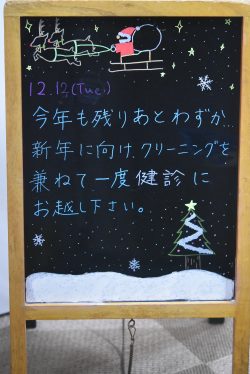 12.12(Tue.)
今年も残りあとわずか
新年に向け、クリーニングを
兼ねて一度健診に
お越し下さい。